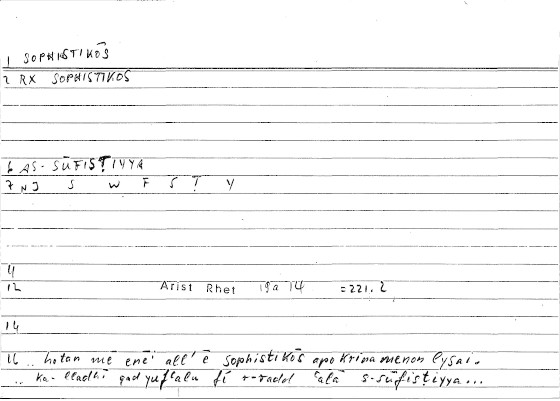 1 SOPHISTIKŌS
2 RX SOPHISTIKOS
6 AS-SŪFISṬIYYA
7 NJ S W F S Ṭ Y
11
12 Arist Rhet 19a 14 =221.2
14
16 .. hotan mē enēi all' ē sophistikōs apokrinamenon lysai.
.. ka-lladhī qad yufʿalu fī r-radd ʿalā s-sūfisṭiyya...